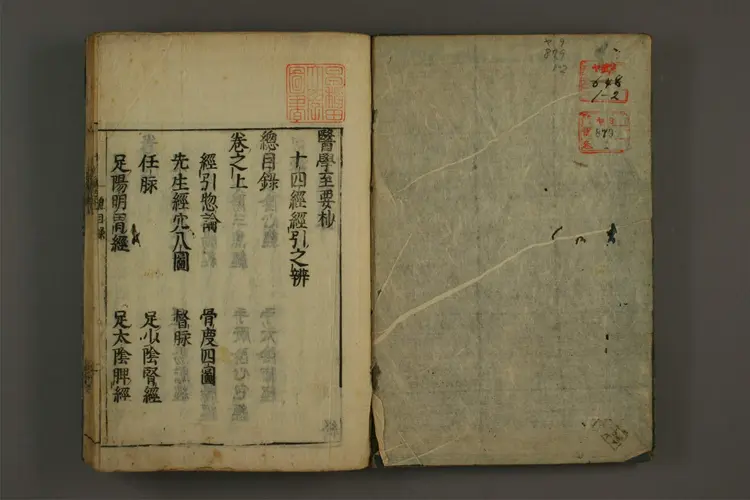 醫學至要抄
十四經經引之辨
總目錄
卷之上
經引惣論 骨度四圖
先生經穴八圖 督脉
任脉 足少陰腎經
足陽明胃經 足太陰脾經
總目錄
648
1-2
879